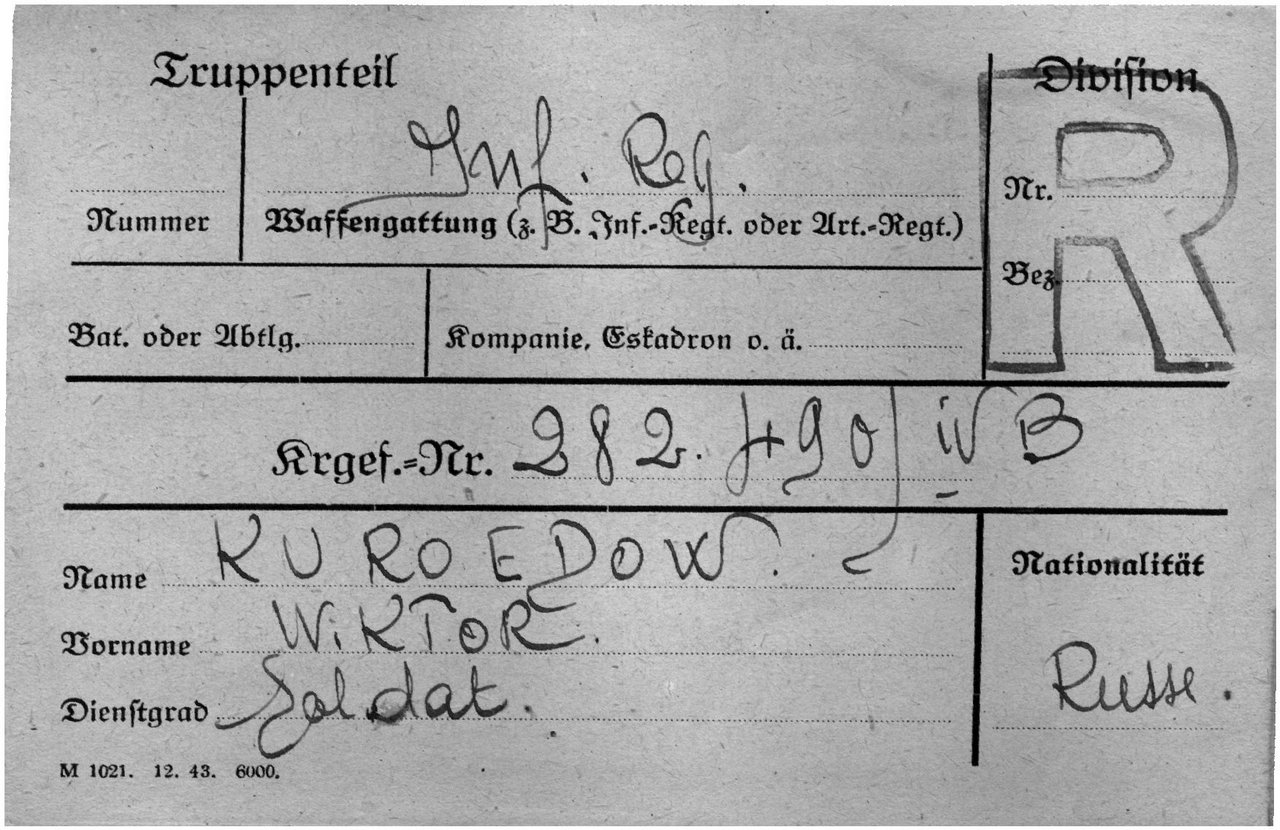 Truppenteil
Division
R
Inf. Reg.
Nr.
Nummer
Waffengattung (z. B. Inf.-Regt. oder Art.-Regt.)
Bez.
Bat. oder Abtlg.
Kompanie, Eskadron o. ä.
Krgef.-Nr. 282.490/ IV B
Name KUROEDOW.
Nationalität
Vorname WiKTOR.
Russe.
Dienstgrad Soldat.
M 1021. 12. 43. 6000.